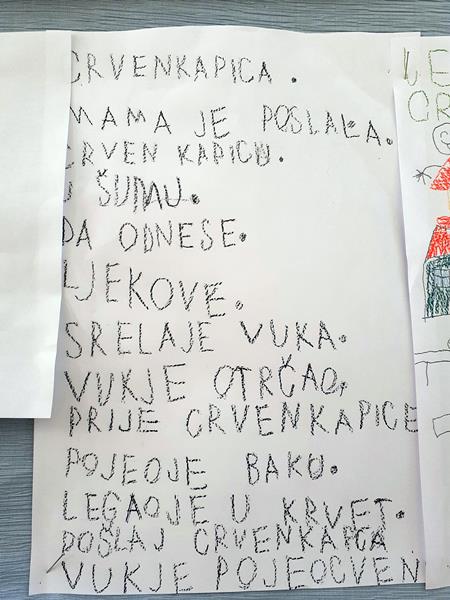 CRVENKAPICA.
MAMA JE POSLALA.
CRVEN KAPICU.
U ŠUMU.
DA ODNESE.
LJEKOVE.
SRELAJE VUKA.
VUKJE OTRČAO,
PRIJE CRVENKAPICE
POJEOJE BAKU.
LEGAOJE U KRVET.
DOŠLAJ CRVENKAPCA
VUKJE POJEOCVEN